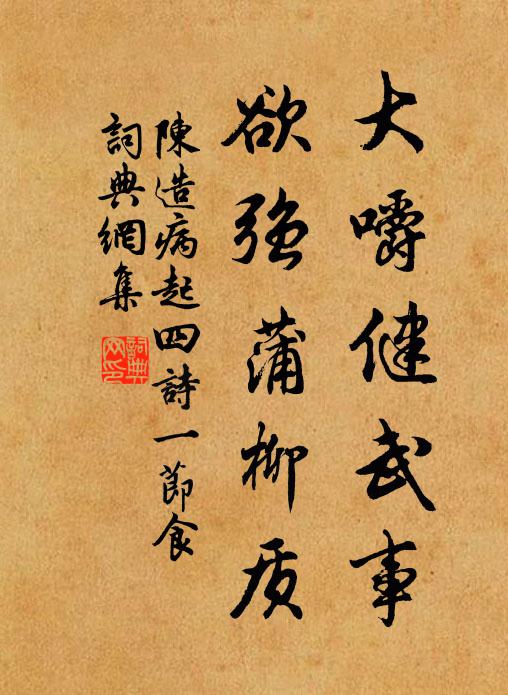 大嚼健武事
欲強蒲柳质
陳造病起四詩一節食
詞典網集
詞典
网印